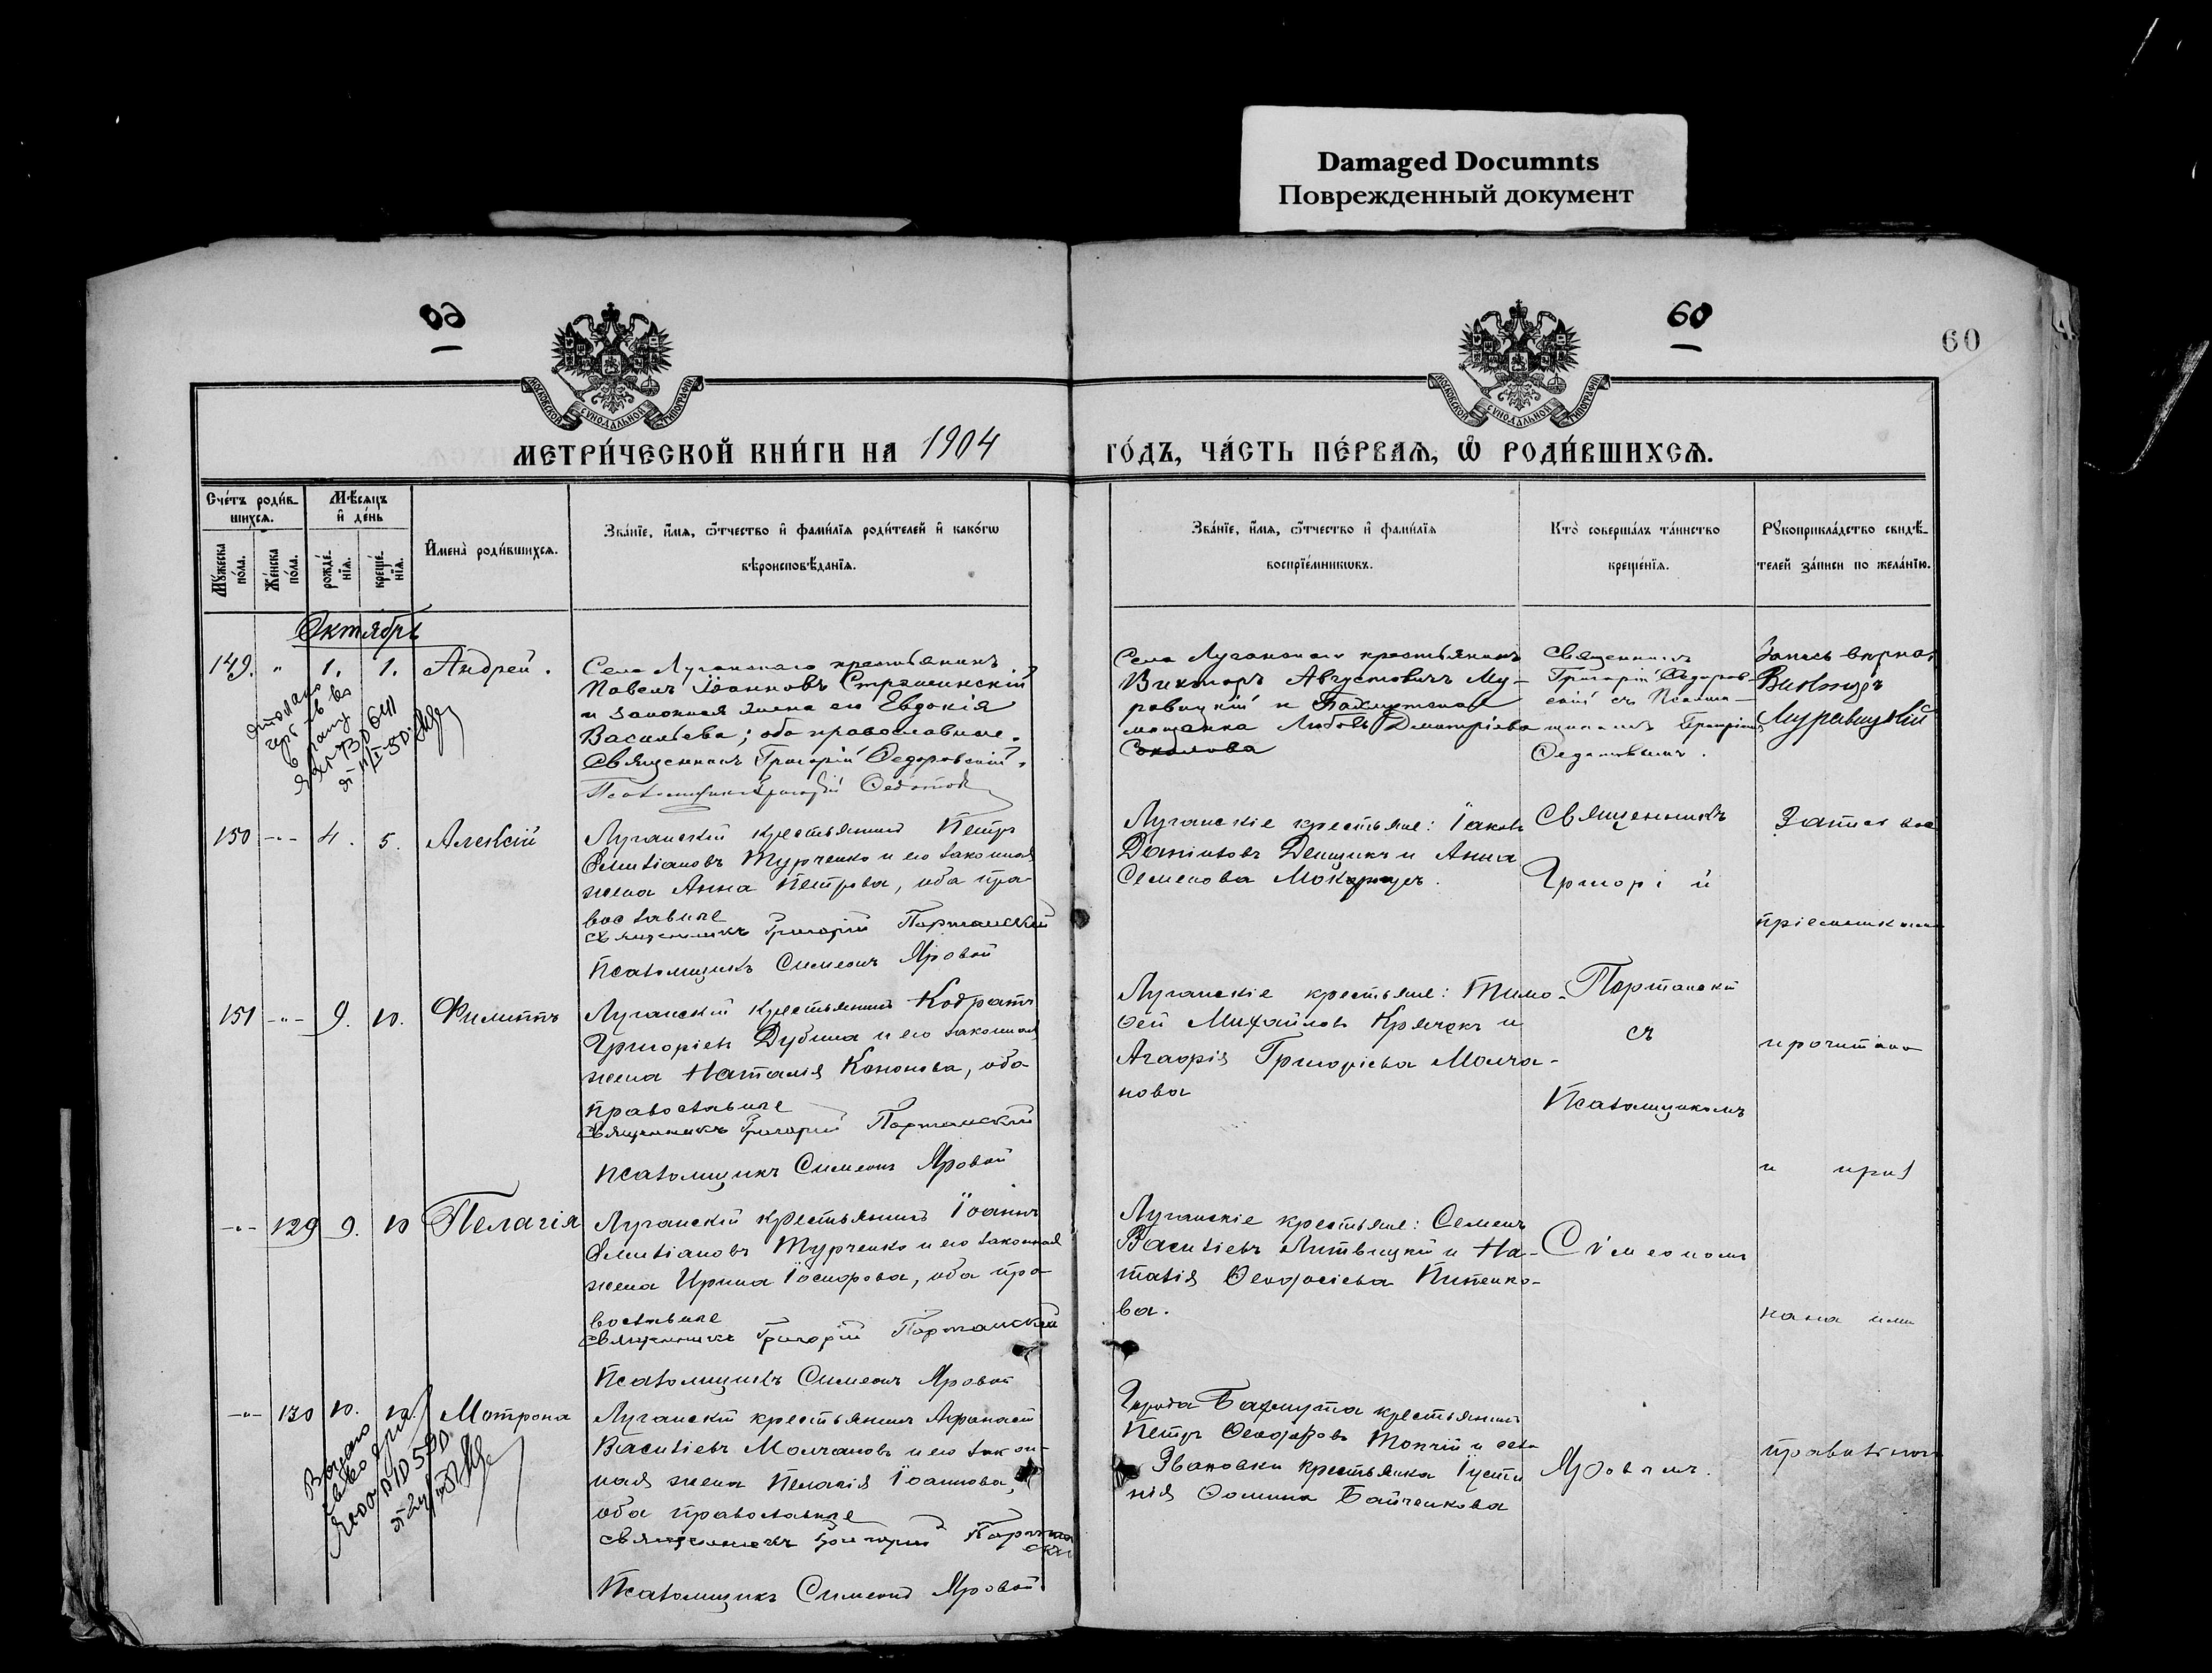 Damaged Documnts
Поврежденный документ
60
60
60
МОСКОВСКОЙ СѴНОДАЛЬНОЙ ТИПОГРАФІИ
МОСКОВСКОЙ СѴНОДАЛЬНОЙ ТИПОГРАФІИ
МЕТРИ́ЧЕСКОЙ КНИ́ГИ НА 1904
ГО́ДЪ, ЧА́СТЬ ПЕ́РВАѦ, Ѽ РОДИ́ВШИХСѦ.
Сче́тъ роди́в-
шихсѧ.
Мꙋ́жеска по́ла.
Же́нска по́ла.
Мѣ́сяцъ
и҆ де́нь
рожде́-
нїѧ.
креще́-
нїѧ.
И҆мена̀ роди́вшихсѧ.
Зва́нїе, и҆́мя, ѻ҆́тчество и҆ фами́лїѧ роди́телей и҆ како́гѡ
вѣроисповѣ́данїѧ.
Зва́нїе, и҆́мя, ѻ҆́тчество и҆ фами́лїѧ
воспрїе́мникѡвъ.
Кто̀ соверша́лъ та́инство
креще́нїѧ.
Рꙋкоприкла́дство свидѣ́-
телей за́писи по жела́нїю.
Октябрь
149. " 1. 1. Андрей.
Села Луганскаго крестьянинъ
Павелъ Іоанновъ Страшинскій
и законная жена его Евдокія
Васильева; оба православные.
Священникъ Григорій Федоровскій.
Псаломщикъ Григорій Федотов
Села Луганскаго крестьянинъ
Викторъ Августовичъ Му-
равицкій и Бахмутская
мещанка Любовь Дмитріева
Соколова
Священникъ
Григорій Федоров-
скій съ Псалом-
щикомъ Григоріемъ
Запись верна:
Викторъ
Муравицкій
150 -"- 4. 5. Алексій
Луганскій крестьянинъ Петръ
Емиліановъ Турченко и его законная
жена Анна Петрова, оба пра-
вославные
священникъ Григорій Портанскій
Псаломщикъ Симеонъ Яровой
Луганскіе крестьяне: Іаковъ
Даніиловъ Денщикъ и Анна
Семенова
Священникъ
Григорій
151 -"- 9. 10. Филиппъ
Луганскій крестьянинъ Кодратъ
Григоріевъ Дубина и его законная
жена Наталія Кононова, оба
православные
священникъ Григорій Портанскій
Псаломщикъ Симеонъ Яровой
Луганскіе крестьяне: Тимо-
фей Михайловъ Крячекъ и
Агафія Григоріева Молча-
нова
Портанскій
съ
Псаломщикомъ
пріемникам
прочитана
и приз
-"- 129 9. 10 Пелагія
Луганскій крестьянинъ Іоаннъ
Емиліановъ Турченко и его законная
жена Ирина Іосифова, оба пра-
вославные
священникъ Григорій Портанскій
Псаломщикъ Симеонъ Яровой
Луганскіе крестьяне: Семенъ
Васильевъ Литвицкій и На-
талія Феодосіева Пипенко-
ва.
Симеономъ
нана ими
-"- 130 10. 10. Мотрона
Луганскій крестьянинъ Афанасій
Васильевъ Молчановъ и его закон-
ная жена Пелагія Іоаннова,
оба православные
священникъ Григорій Портан
скій
Псаломщикъ Симеонъ Яровой
Города Бахмута крестьянинъ
Петръ Феодоровъ Топчій и села
Звановки крестьянка Іусти
нія Фомина Байченкова
Яровымъ.
правильною